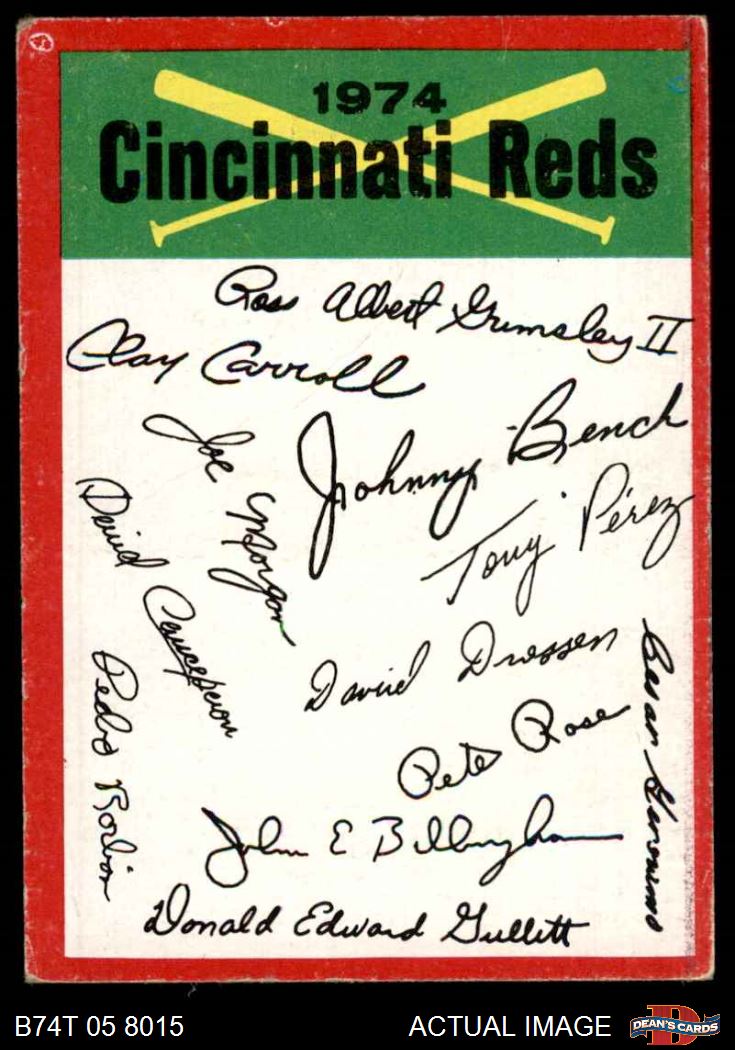 1974
Cincinnati Reds
Ross Albert Grimsley II
Clay Carroll
Johnny Bench
Joe Morgan
Tony Pérez
David Concepcion
David Driessen
Cesar Geronimo
Pedro Borbon
Pete Rose
John E Billingham
Donald Edward Gullett
B74T 05 8015
ACTUAL IMAGE
D
DEAN'S CARDS